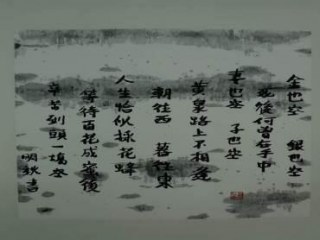 金也空 銀也空
死後何曾在手中
妻也空 子也空
黃泉路上不相逢
朝往西 暮往東
人生恰似採花蜂
等待百花成蜜後
辛苦到頭一場空